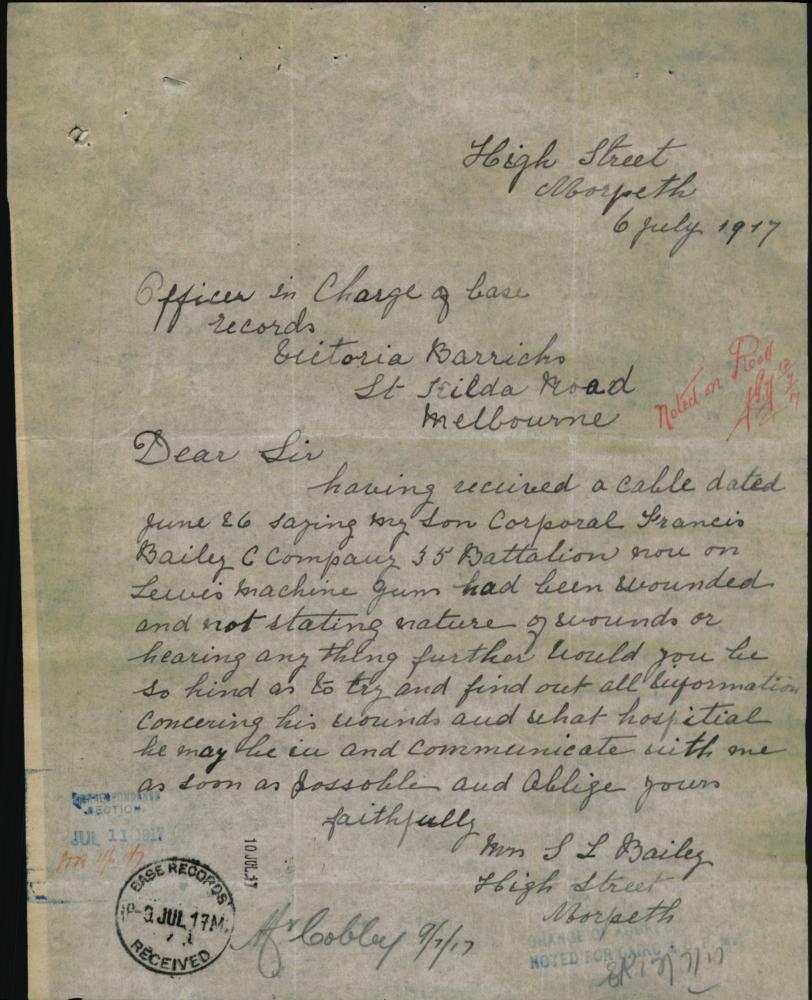 High Street
Morpeth
6 July 1917
Officer in Charge of base
records
Victoria Barricks
St Kilda Road
Melbourne
Noted on Roll
Dear Sir
having received a cable dated
June 26 saying my Son Corporal Francis
Bailey C Company 35 Battalion now on
Lewis Machine Guns had been wounded
and not stating nature of wounds or
hearing any thing further would you be
so kind as to try and find out all information
Concering his wounds and what hospitial
he may be in and Communicate with me
as soon as possoble and Oblige yours
faithfully
Mrs S L Bailey
High Street
Morpeth
CORRESPONDENCE
SECTION.
JUL 11 1917
10 JUL. 17
BASE RECORDS
9 JUL 17
RECEIVED
Mr Cobley 9/7/17
NOTED FOR